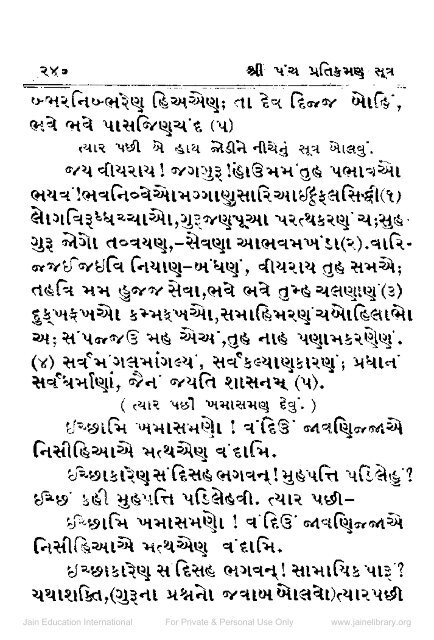 ૨૪૦ શ્રી પંચ પ્રતિક્રમણ સૂત્ર
બ્ભરનિબ્ભરેણ હિઅએણ; તા દેવ દિજ્જ બોહિં,
ભવે ભવે પાસજિણચંદ (૫)
ત્યાર પછી બે હાથ જોડીને નીચેનું સૂત્ર બોલવું.
જય વીયરાય! જગગુરૂ!હોઉમમંતુહ પભાવઓ
ભયવં!ભવનિવ્વેઓમગ્ગાણુસારિઆઈઠ્ઠફલસિદ્ધી(૧)
લોગવિરૂધ્ધચ્ચાઓ,ગુરૂજણપૂઆ પરત્થકરણં ચ;સુહ-
ગુરૂ જોગો તવ્વયણ,-સેવણા આભવમખંડા(૨).વારિ-
જ્જઈજઈવિ નિયાણ-બંધણં, વીયરાય તુહ સમએ;
તહવિ મમ હુજ્જ સેવા,ભવે ભવે તુમ્હ ચલણાણં(૩)
દુક્ખક્ખઓ કમ્મક્ખઓ,સમાહિમરણંચબોહિલાભો
અ; સંપજ્જઉ મહ એઅં,તુહ નાહ પણામકરણેણં.
(૪) સર્વમંગલમાંગલ્યં, સર્વકલ્યાણકારણં; પ્રધાનં
સર્વધર્માણાં, જૈનં જયતિ શાસનમ્ (૫).
( ત્યાર પછી ખમાસમણ દેવું. )
ઇચ્છામિ ખમાસમણો ! વંદિઉં જાવણિજ્જાએ
નિસીહિઆએ મત્થએણ વંદામિ.
ઇચ્છાકારેણ સંદિસહ ભગવન્! મુહપત્તિ પડિલેહું?
ઇચ્છં કહી મુહપત્તિ પડિલેહવી. ત્યાર પછી-
ઇચ્છામિ ખમાસમણો ! વંદિઉં જાવણિજ્જાએ
નિસીહિઆએ મત્થએણ વંદામિ.
ઇચ્છાકારેણ સંદિસહ ભગવન્! સામાયિક પારૂં?
યથાશક્તિ,(ગુરૂના પ્રશ્નનો જવાબ બોલવો)ત્યારપછી
Jain Education International For Private & Personal Use Only www.jainelibrary.org